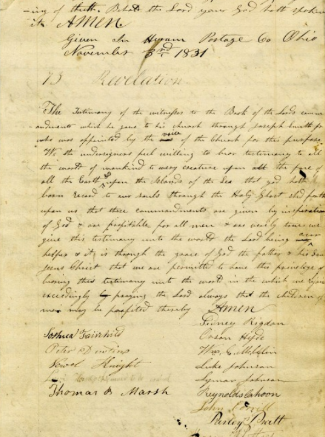 ing of truth Behold the Lord your God hath spoken
it AMEN
Given in Hyram Portage Co Ohio
November 3rd 1831
13 Revelation
The Testimony of the witnesses to the Book of the Lords comm
andments which he gave to his church through Joseph Smith jr
who was appointed by the voice of the Church for this purpose
We the undersigners feel willing to bear testimony to all
the world of mankind to every creature upon all the face of
all the Earth & upon the Islands of the Sea that god hath
born record to our souls through the Holy Ghost shed forth
upon us that these commandments are given by inspiration
of God & are profitable for all men & are verily true we
give this testimony unto the world the Lord being our
helper & it is through the grace of God the father & his Son
Jesus Christ that we are permitted to have this privelege of
bearing this testimony unto the world in the which we rejoice
exceedingly praying the Lord always that the children of
men may be profited thereby Amen
Sidney Rigdon
Joshua Fairchild Orson Hyde
Peter Dustin Wm. E. McLellin
Newel Knight Luke Johnson
Lyman Johnson
Thomas B Marsh Reynolds Cahoon
John
Parley Pratt